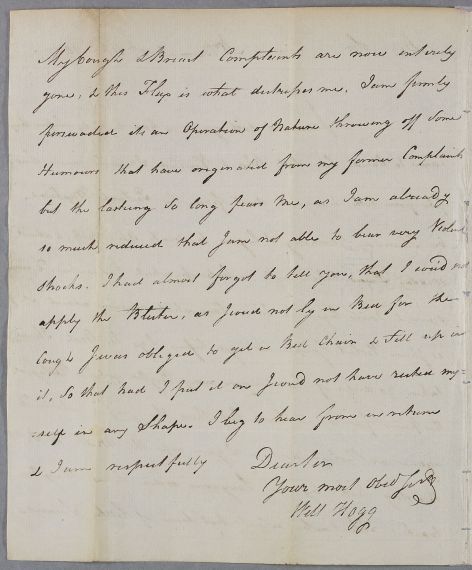 My Cough & Breast Complaints are now entirely
gone, & this Flux is what distresses me. I am firmly
perswaded its an Operation of Nature throwing off some
Humours that have originated from my former Complaint
but the lasting so long fears me, as I am already
so much reduced that I am not able to bear very Violent
shocks. I had almost forgot to tell you, that I coud not
apply the Blister, as I coud not ly in Bed for the
Cough I was obliged to get a Bed Chair & sitt up in
it, so that had I put it on I coud not have rested my=
=self in any shape. I beg to hear from in return
& I am respectfully
Dear Sir
Your most Obed Serv
Will Hogg